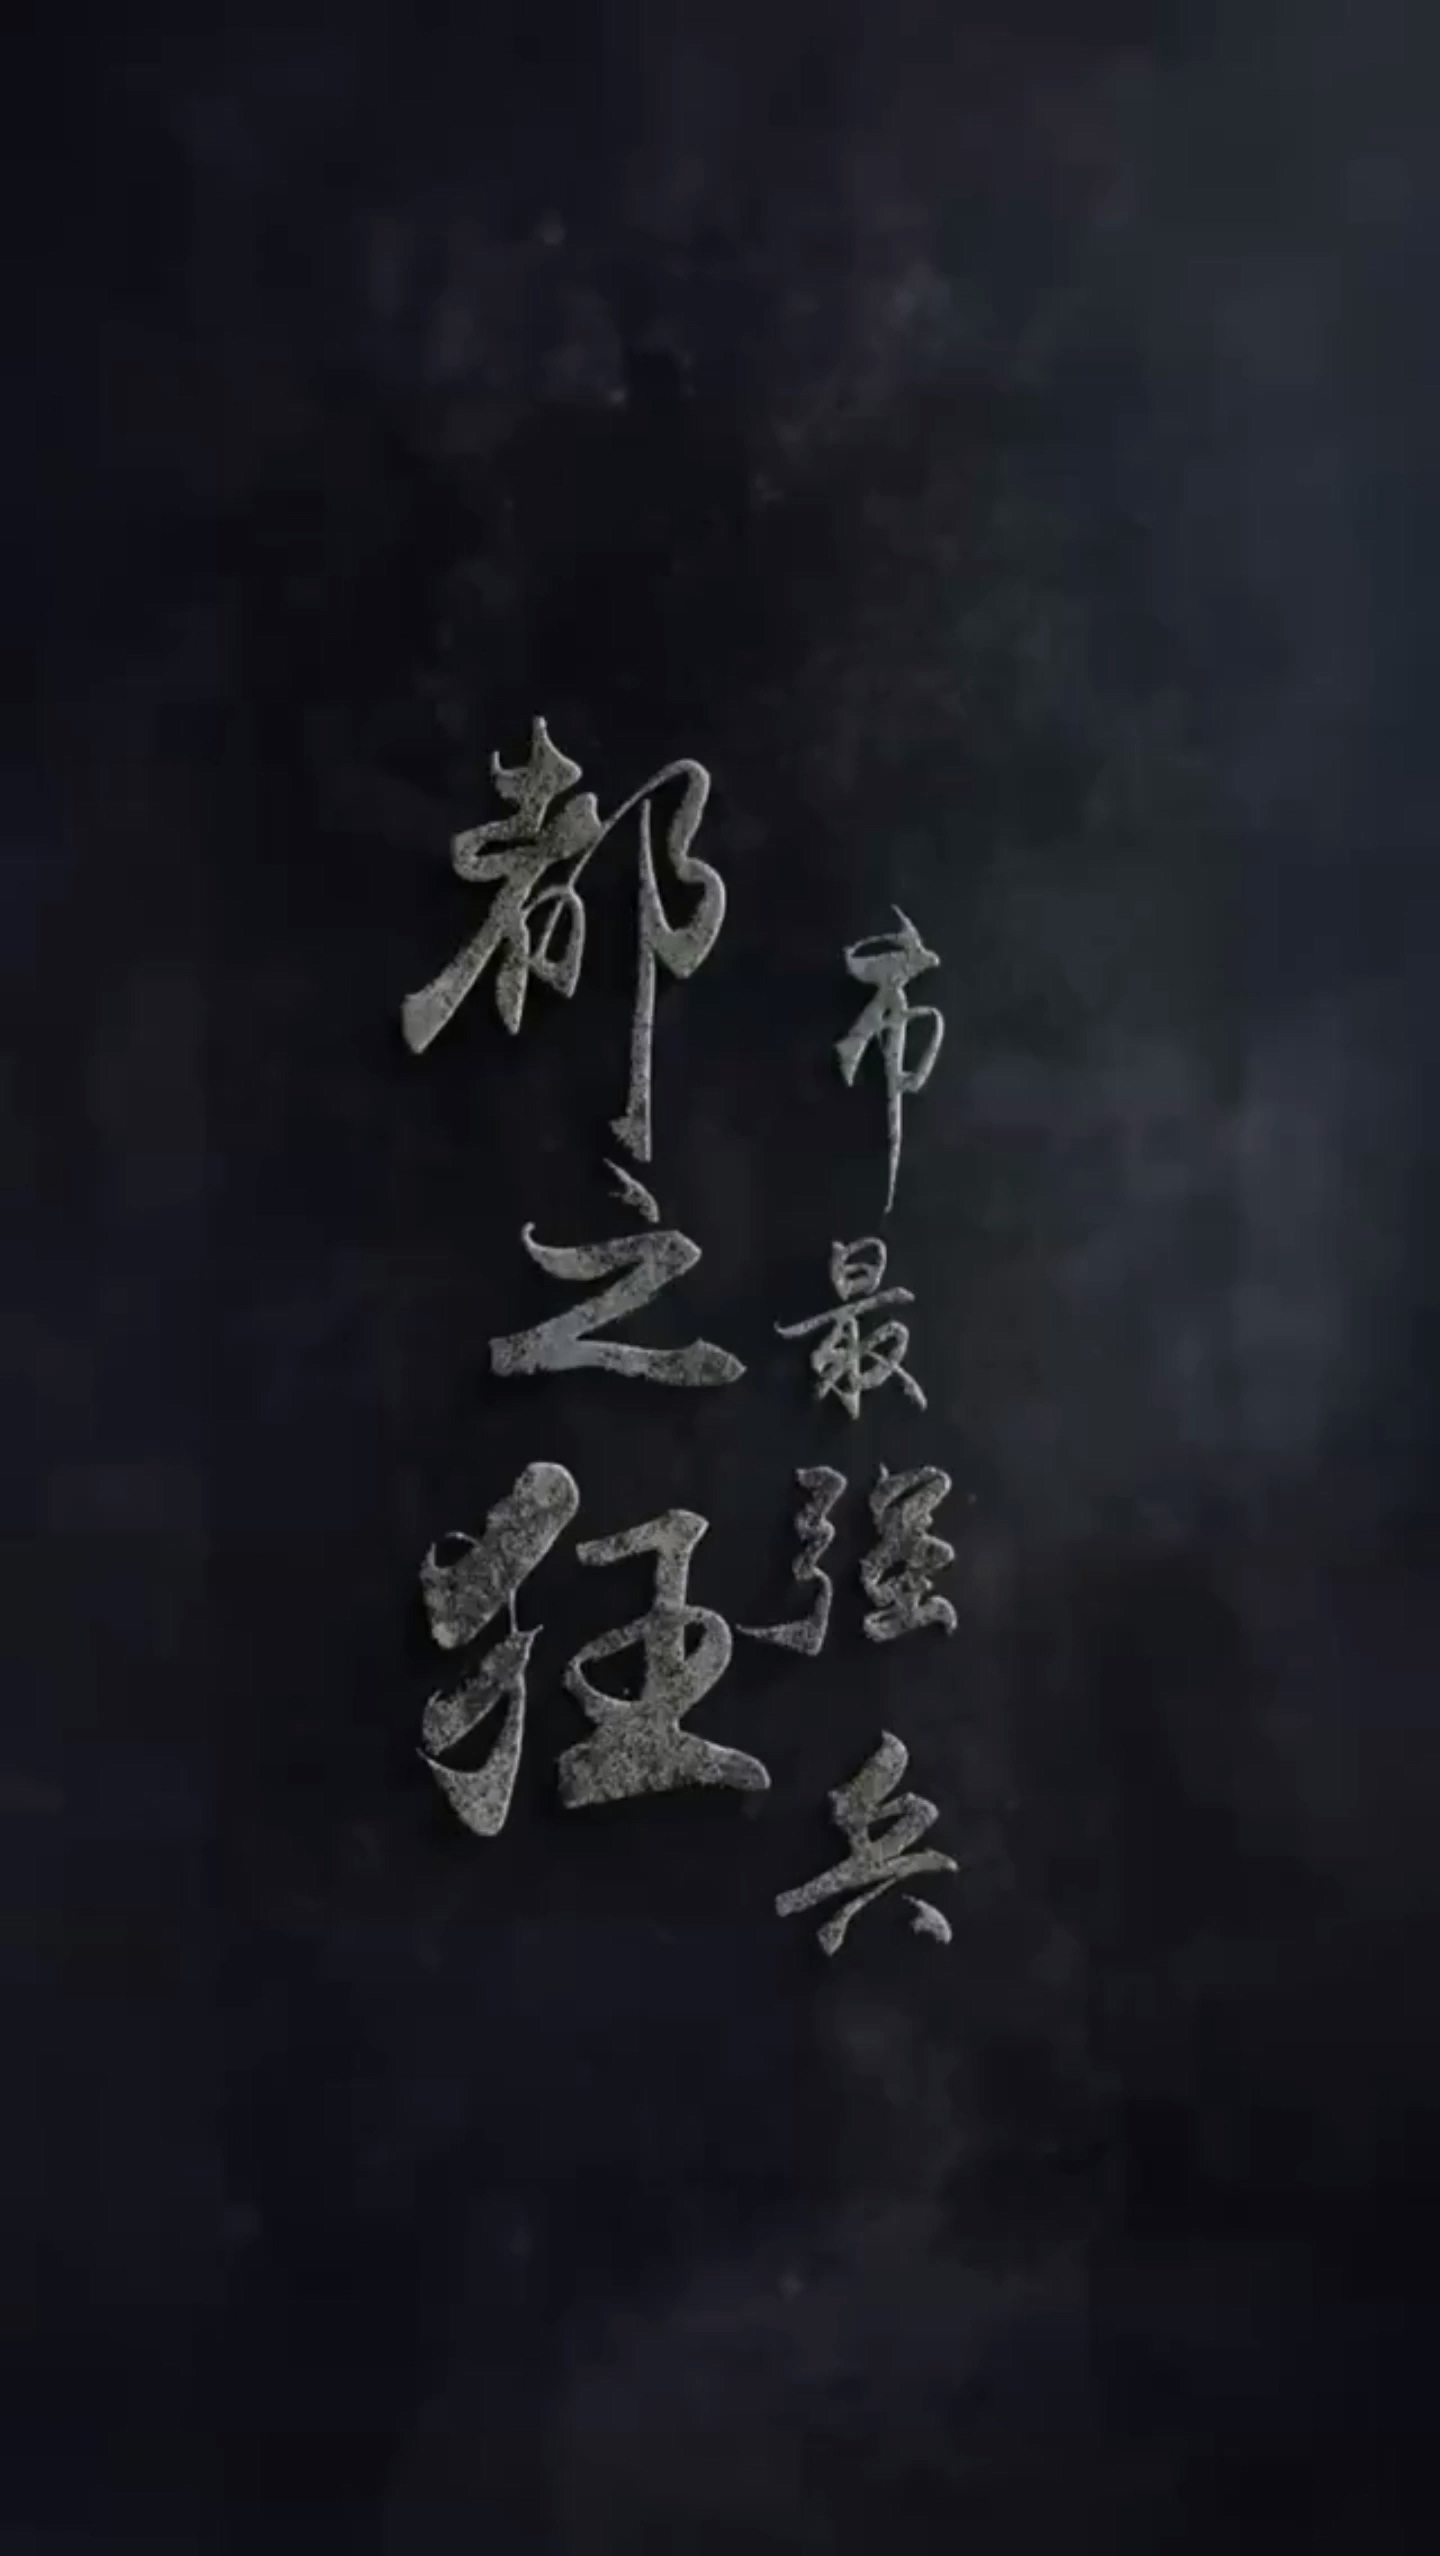 都市
之最
狂强
兵